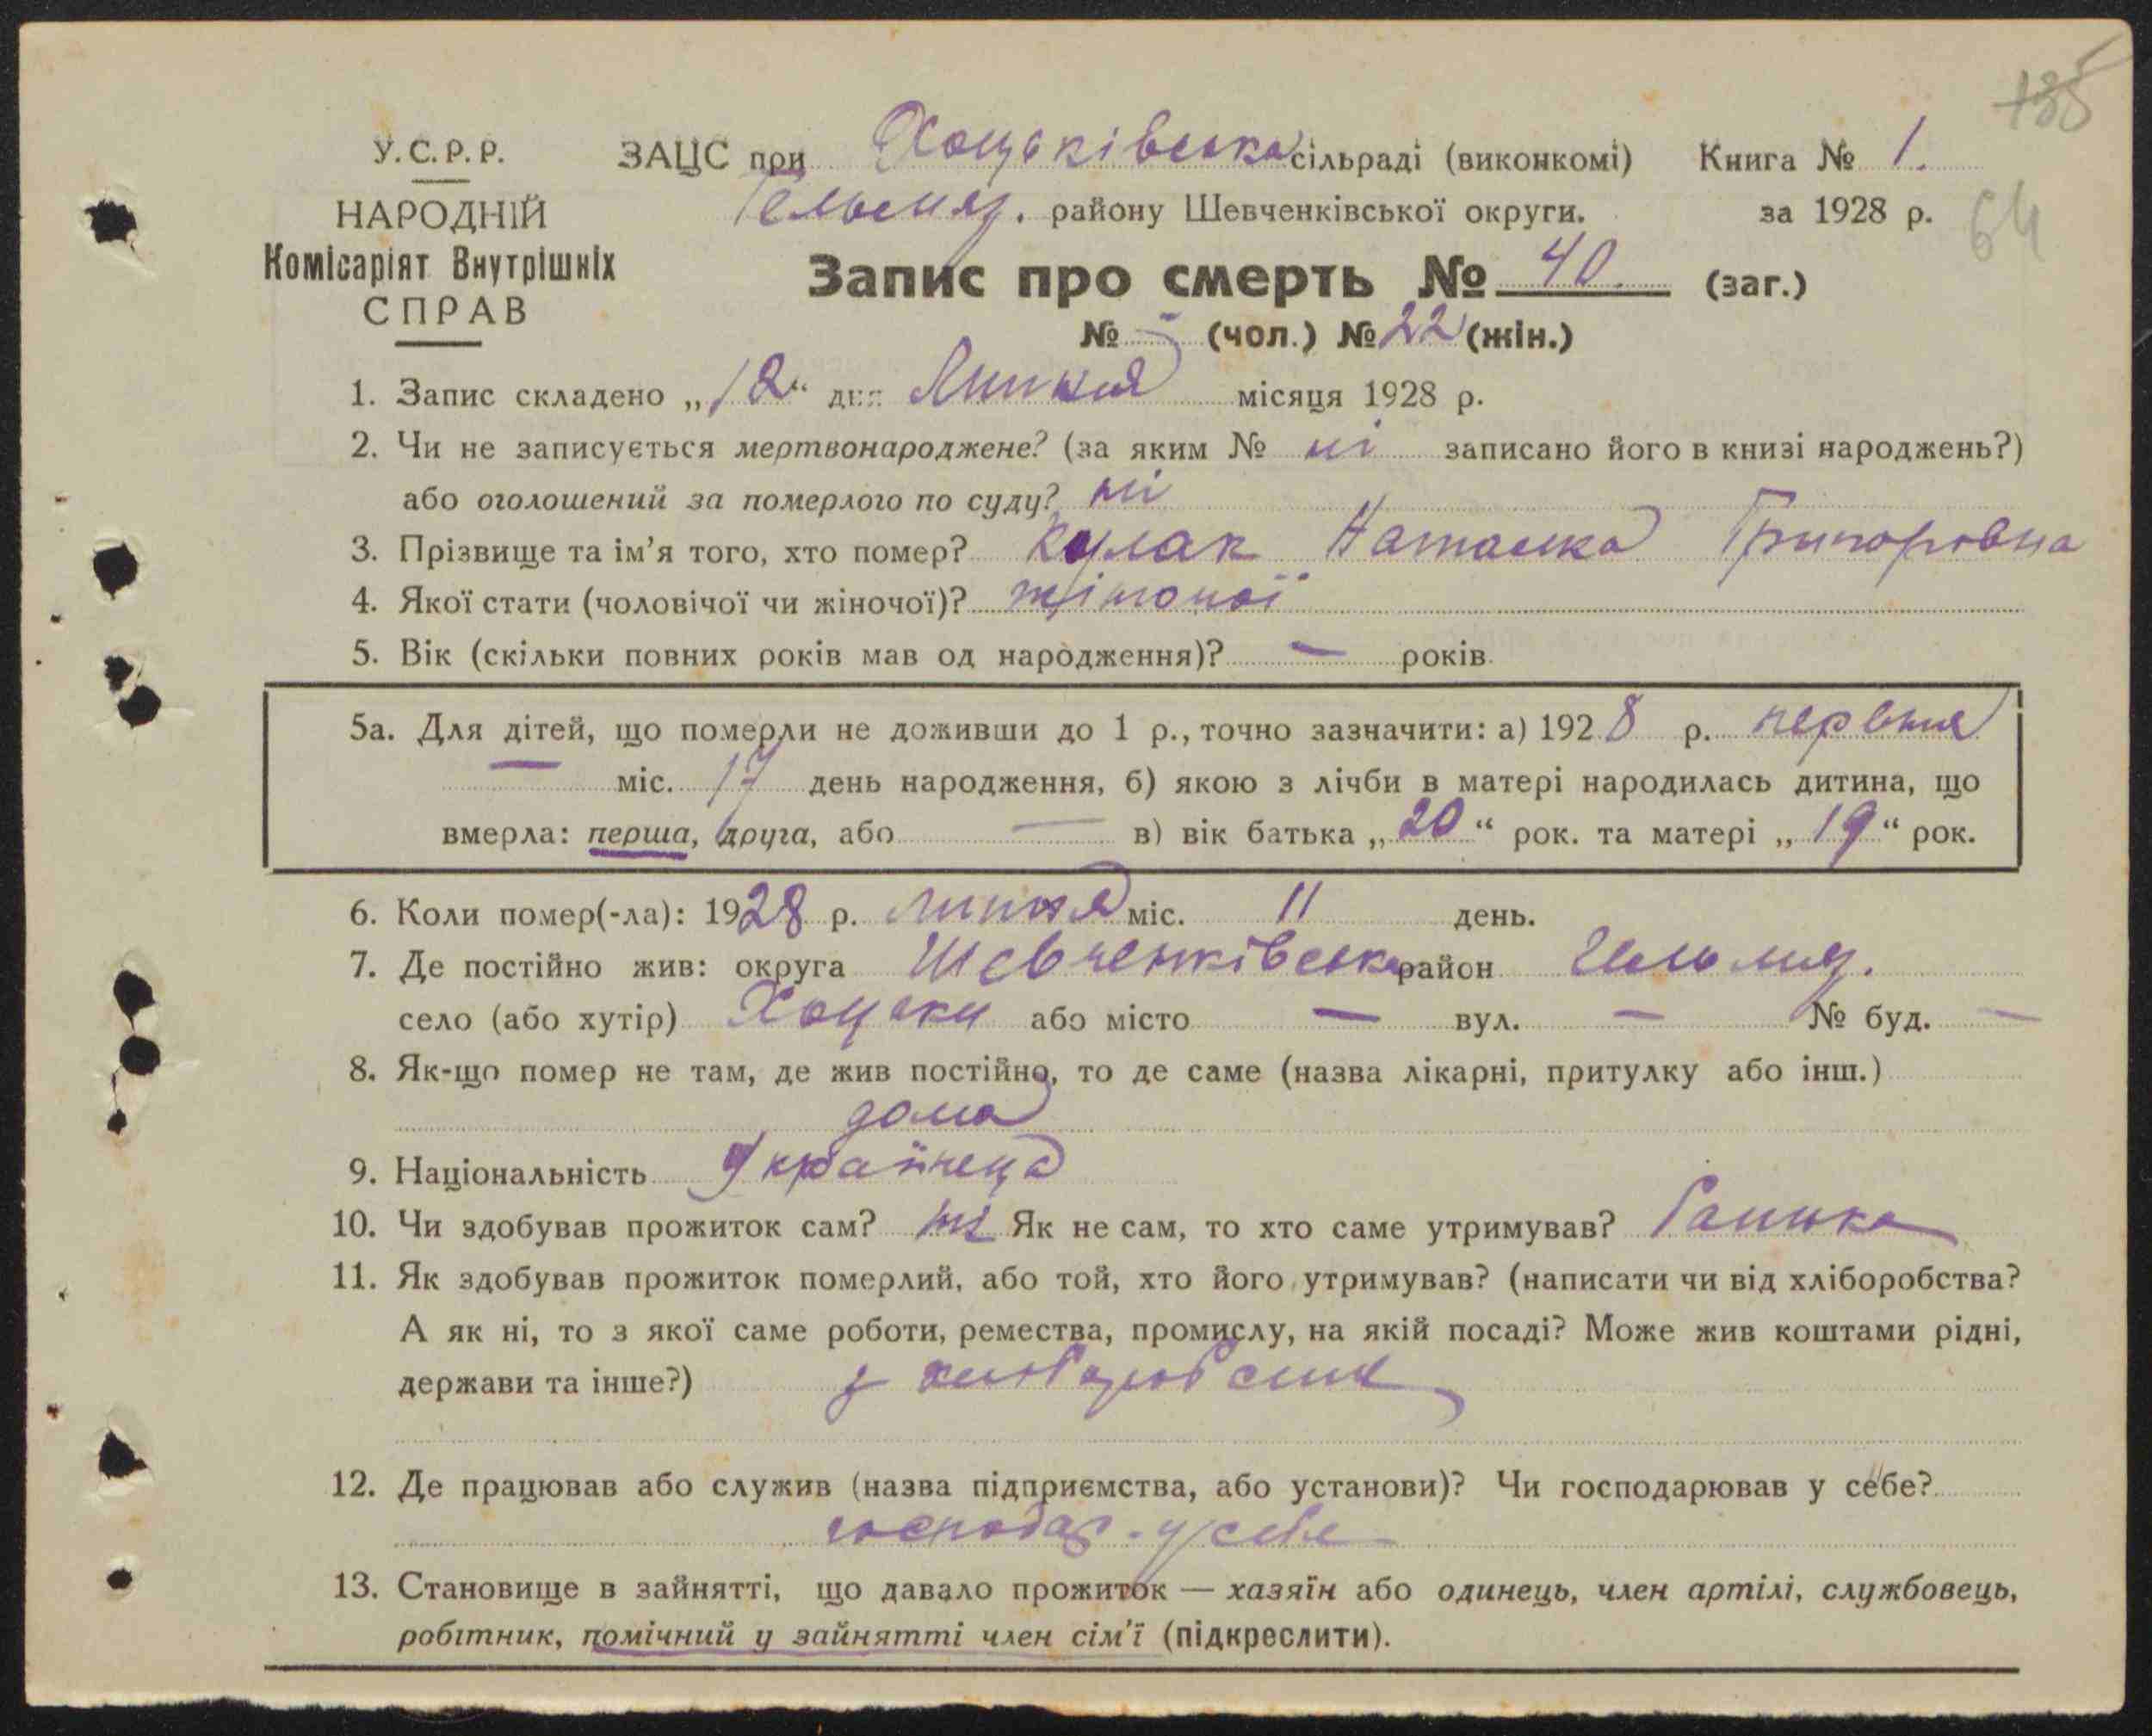 135
У.С.Р.Р. ЗАЦС при Хоцьківська сільраді (виконкомі) Книга № 1.
НАРОДНІЙ Гельмяз. району Шевченківської округи. за 1928 р. 64
Комісаріят Внутрішніх
СПРАВ
Запис про смерть № 40. (заг.)
№ - (чол.) № 22 (жін.)
1. Запис складено „12“ дня Липня місяця 1928 р.
2. Чи не записується мертвонароджене? (за яким № ні записано його в книзі народжень?)
або оголошений за померлого по суду? ні
3. Прізвище та ім'я того, хто помер? Кулак Наталка Григоровна
4. Якої стати (чоловічої чи жіночої)? жіночої
5. Вік (скільки повних років мав од народження)? — років
5а. Для дітей, що померли не доживши до 1 р., точно зазначити: а) 1928 р. червня
— міс. 17 день народження, б) якою з лічби в матері народилась дитина, що
вмерла: перша, друга, або — в) вік батька „20“ рок. та матері „19“ рок.
6. Коли помер(-ла): 1928 р. липня міс. 11 день.
7. Де постійно жив: округа Шевченківська район Гельмяз.
село (або хутір) Хоцьки або місто — вул. — № буд. —
8. Як-що помер не там, де жив постійно, то де саме (назва лікарні, притулку або інш.)
дома
9. Національність Українець
10. Чи здобував прожиток сам? ні Як не сам, то хто саме утримував?
11. Як здобував прожиток померлий, або той, хто його утримував? (написати чи від хліборобства?
А як ні, то з якої саме роботи, ремества, промислу, на якій посаді? Може жив коштами рідні,
держави та інше?) з
12. Де працював або служив (назва підприємства, або установи)? Чи господарював у себе?
господар. у себе
13. Становище в зайнятті, що давало прожиток — хазяїн або одинець, член артілі, службовець,
робітник, помічний у зайнятті член сім'ї (підкреслити).